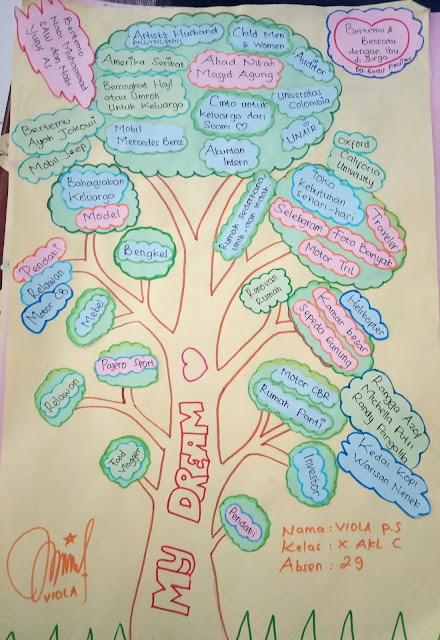 Bertemu
Nabi Muhammad
SAW dan Nabi
Yusuf As
Artist's Husband
Child Men
& Women
Bertemu &
Bersatu
dengan Ibu
di Surga
Amerika Serikat
Ahad Nikah
Masjid Agung
Auditor
Berangkat Haji
atau Umroh
Untuk Keluarga
Cinta untuk
Keluarga dari
Suami ♡
Universitas
Colombia
UNAIR
Mobil
Mercedes Benz
Akuntan
Intern
Bertemu
Ayah Jokowi
Mobil Jeep
Oxford
California
University
Bahagiakan
Keluarga
Model
Rumah sederhana,
unik, dan indah
Toko
kebutuhan
sehari-hari
Traveler
Selebgram
Foto Banyak
Motor Tril
Bengkel
Pendaki
Relawan
Motor CB
Renovasi
Rumah
Helikopter
Kamar besar
Sepeda Gunung
Mebel
Pajero Sport
Relawan
Motor CBR
Rumah Panti
Rangga Azof
Michella Putri
Randy Pangalila
Kedai Kopi
Warisan Nenek
Food
Vlogger
Investor
Pendaki
MY DREAM
Nama : VIOLA P.S
Kelas : X AKL C
Absen : 29
VIOLA